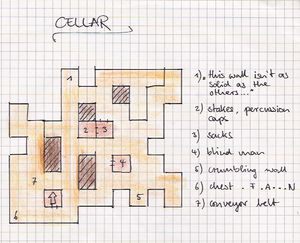 CELLAR
1) „this wall isn't as
solid as the
others..."
2) stakes, percussion
caps
3) sacks
4) blind man
5) crumbling wall
6) chest . F . A . . N
7) conveyor belt
1
2
3
4
7
5
6